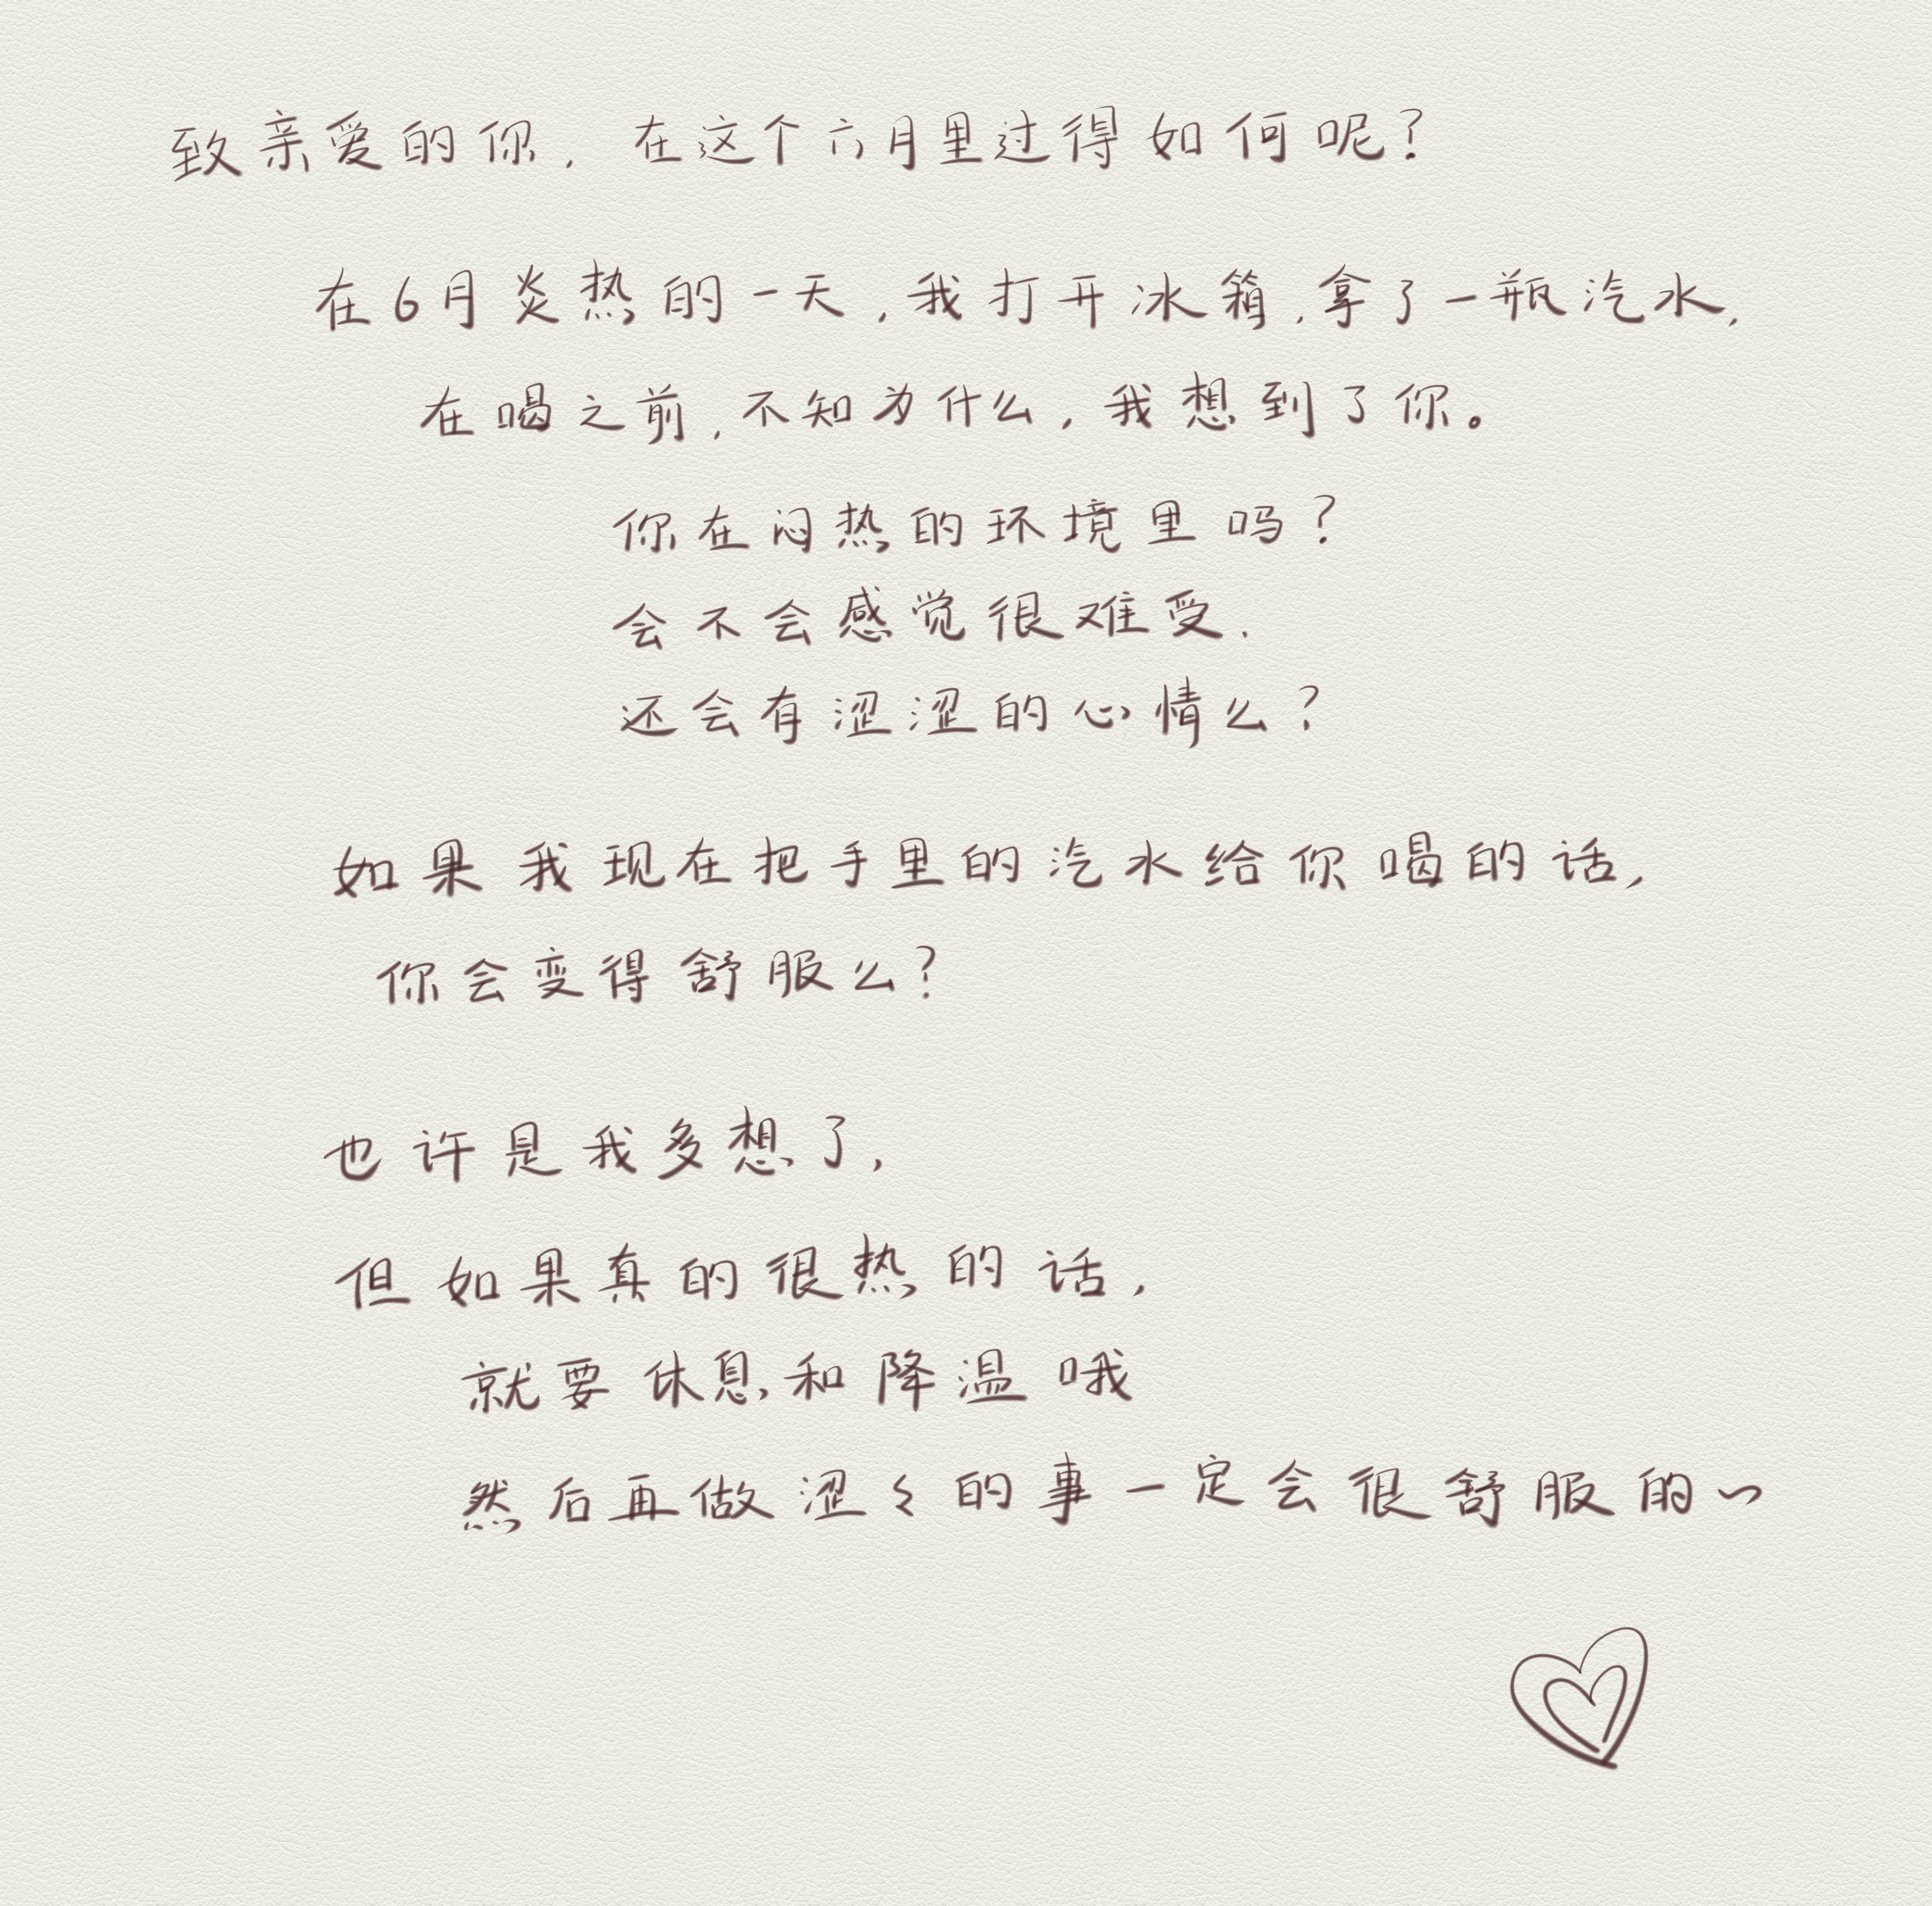 致亲爱的你，在这个六月里过得如何呢？
在6月炎热的一天，我打开冰箱，拿了一瓶汽水，
在喝之前，不知为什么，我想到了你。
你在闷热的环境里吗？
会不会感觉很难受，
还会有涩涩的心情么？
如果我现在把手里的汽水给你喝的话，
你会变得舒服么？
也许是我多想了，
但如果真的很热的话，
就要休息和降温哦
然后再做涩々的事一定会很舒服的～